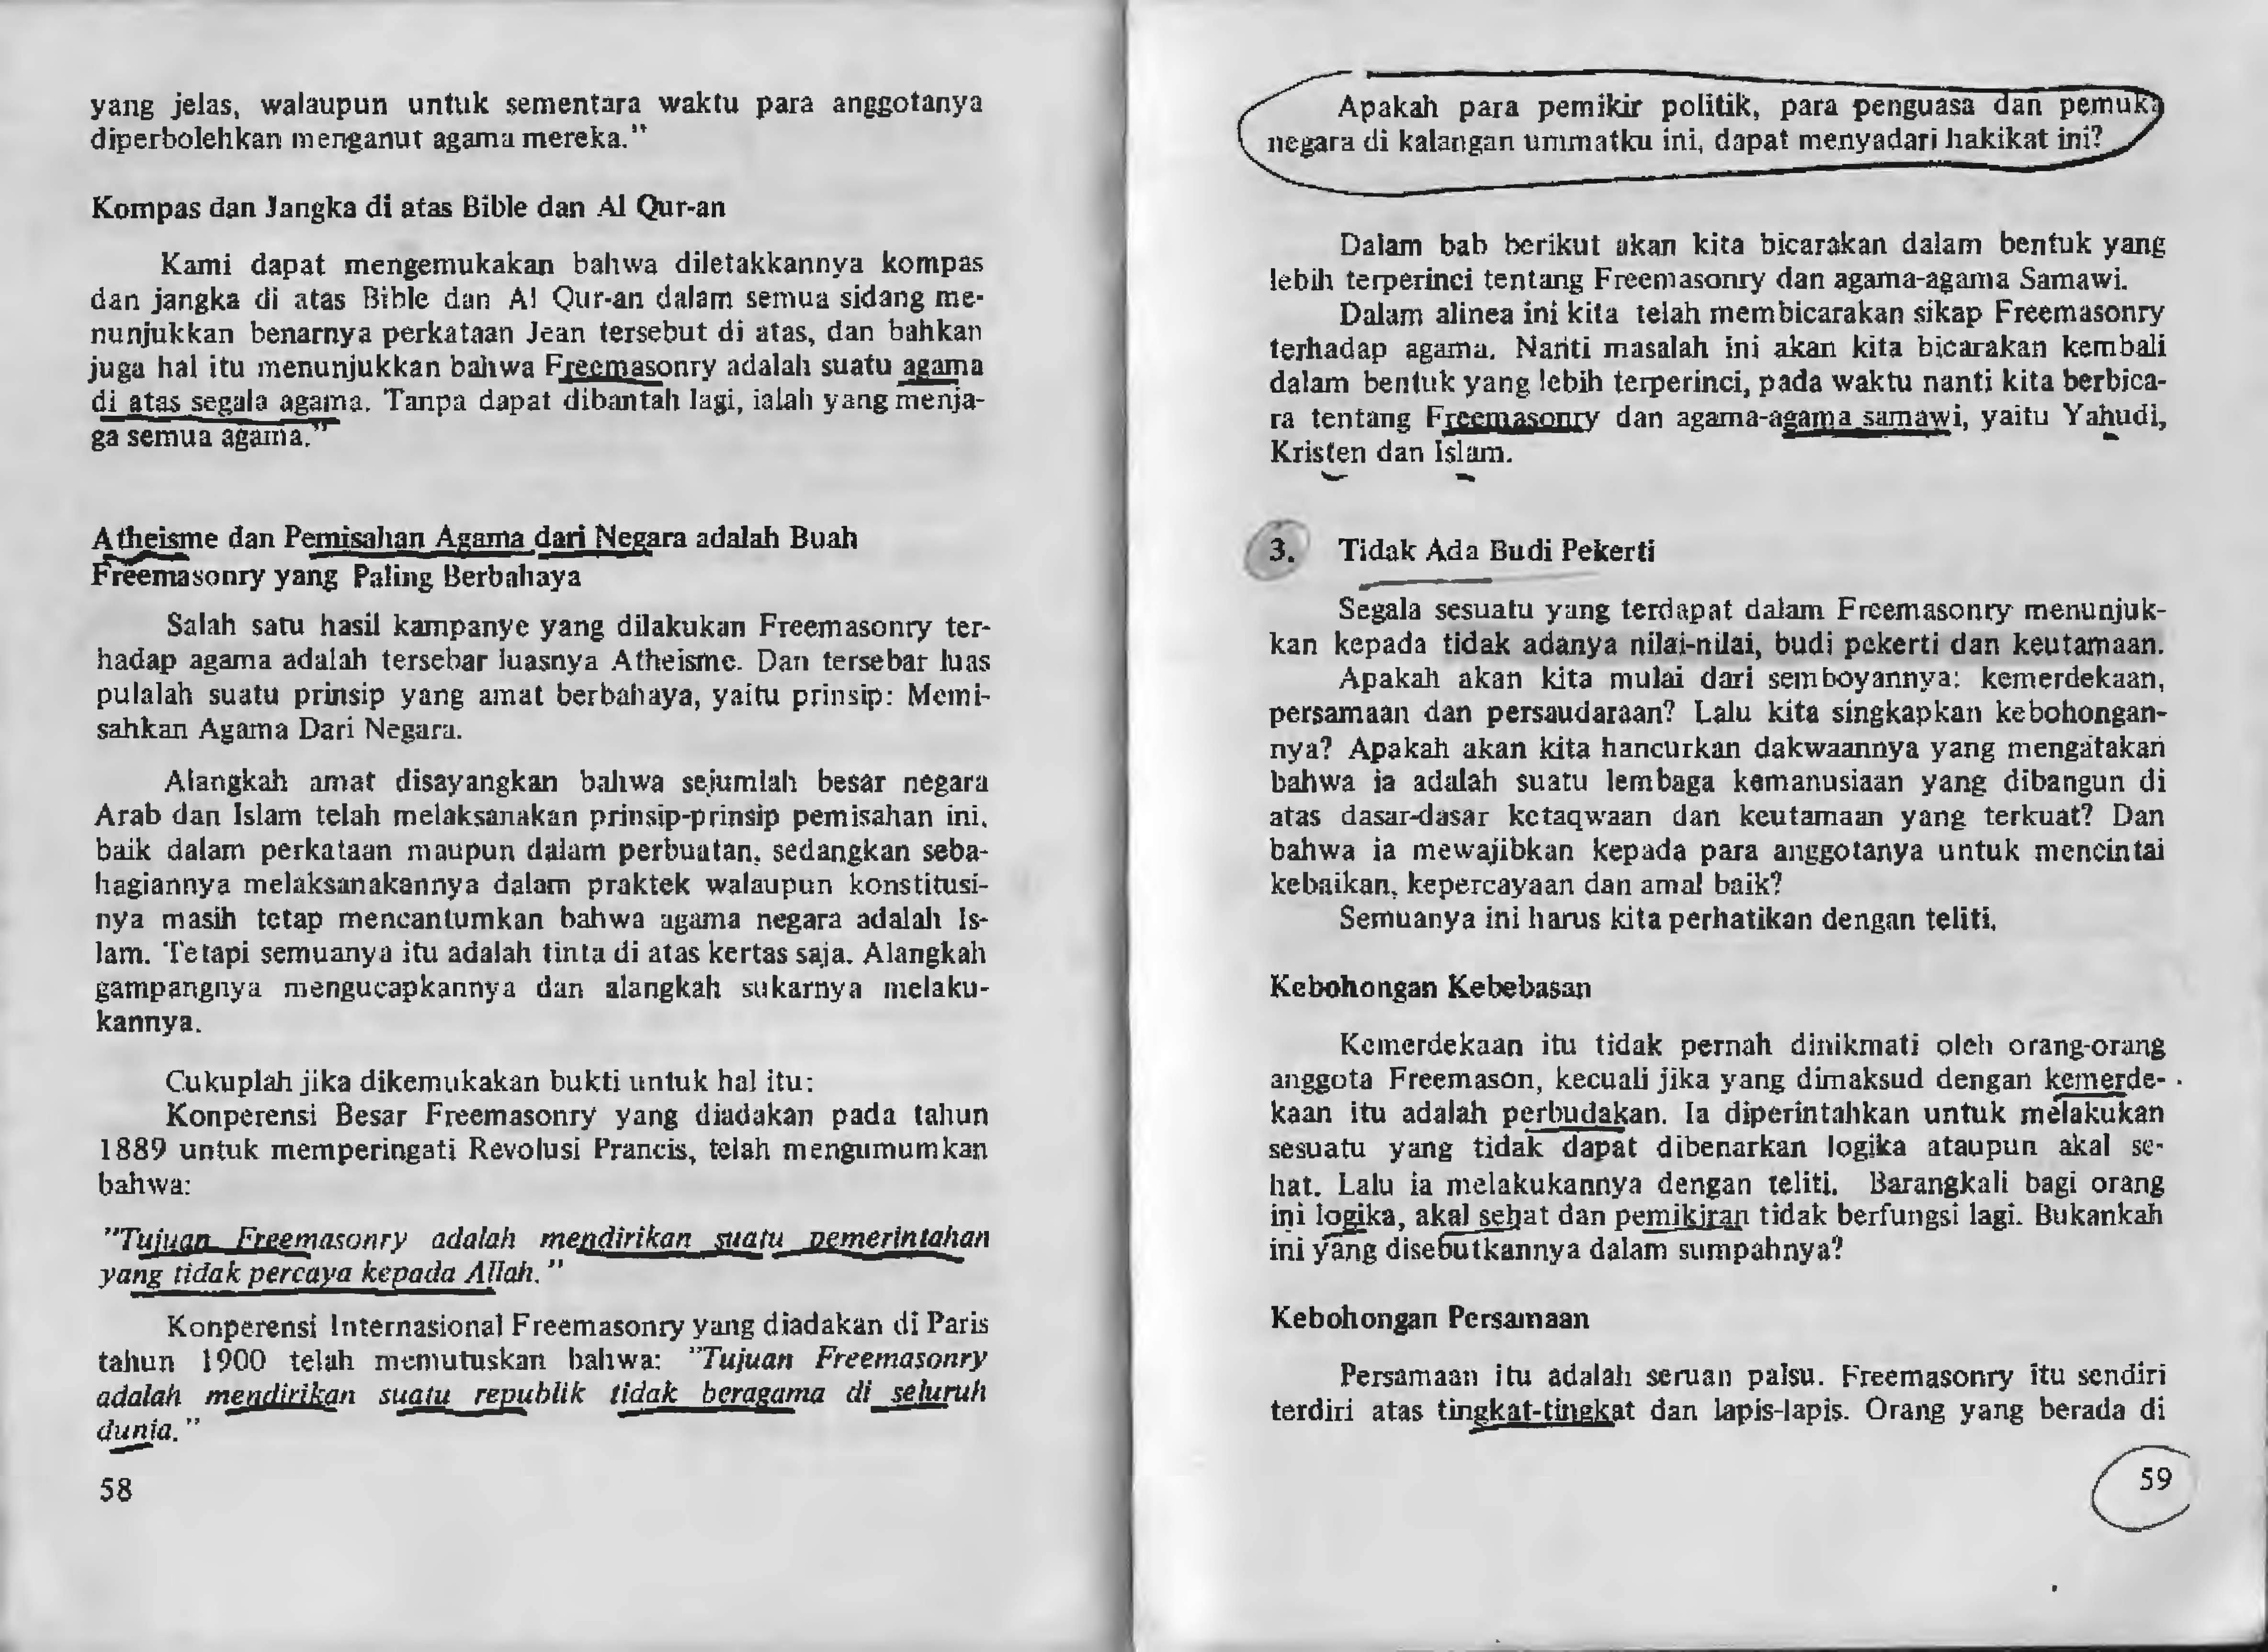 yang jelas, walaupun untuk sementara waktu para anggotanya
diperbolehkan menganut agama mereka."
Kompas dan Jangka di atas Bible dan Al Qur-an
Kami dapat mengemukakan bahwa diletakkannya kompas
dan jangka di atas Bible dan Al Qur-an dalam semua sidang me-
nunjukkan benarnya perkataan Jean tersebut di atas, dan bahkan
juga hal itu menunjukkan bahwa Freemasonry adalah suatu agama
di atas segala agama. Tanpa dapat dibantah lagi, ialah yang menja-
ga semua agama."
Atheisme dan Pemisahan Agama dari Negara adalah Buah
Freemasonry yang Paling Berbahaya
Salah satu hasil kampanye yang dilakukan Freemasonry ter-
hadap agama adalah tersebar luasnya Atheisme. Dan tersebar luas
pulalah suatu prinsip yang amat berbahaya, yaitu prinsip: Memi-
sahkan Agama Dari Negara.
Alangkah amat disayangkan bahwa sejumlah besar negara
Arab dan Islam telah melaksanakan prinsip-prinsip pemisahan ini,
baik dalam perkataan maupun dalam perbuatan, sedangkan seba-
hagiannya melaksanakannya dalam praktek walaupun konstitusi-
nya masih tetap mencantumkan bahwa agama negara adalah Is-
lam. Tetapi semuanya itu adalah tinta di atas kertas saja. Alangkah
gampangnya mengucapkannya dan alangkah sukarnya melaku-
kannya.
Cukuplah jika dikemukakan bukti untuk hal itu:
Konperensi Besar Freemasonry yang diadakan pada tahun
1889 untuk memperingati Revolusi Prancis, telah mengumumkan
bahwa:
"Tujuan Freemasonry adalah mendirikan suatu pemerintahan
yang tidak percaya kepada Allah."
Konperensi Internasional Freemasonry yang diadakan di Paris
tahun 1900 telah memutuskan bahwa: "Tujuan Freemasonry
adalah mendirikan suatu republik tidak beragama di seluruh
dunia."
58
Apakah para pemikir politik, para penguasa dan pemuka
negara di kalangan ummatku ini, dapat menyadari hakikat ini?
Dalam bab berikut akan kita bicarakan dalam bentuk yang
lebih terperinci tentang Freemasonry dan agama-agama Samawi.
Dalam alinea ini kita telah membicarakan sikap Freemasonry
terhadap agama. Nanti masalah ini akan kita bicarakan kembali
dalam bentuk yang lebih terperinci, pada waktu nanti kita berbica-
ra tentang Freemasonry dan agama-agama samawi, yaitu Yahudi,
Kristen dan Islam.
3. Tidak Ada Budi Pekerti
Segala sesuatu yang terdapat dalam Freemasonry menunjuk-
kan kepada tidak adanya nilai-nilai, budi pekerti dan keutamaan.
Apakah akan kita mulai dari semboyannya: kemerdekaan,
persamaan dan persaudaraan? Lalu kita singkapkan kebohongan-
nya? Apakah akan kita hancurkan dakwaannya yang mengatakan
bahwa ia adalah suatu lembaga kemanusiaan yang dibangun di
atas dasar-dasar ketaqwaan dan keutamaan yang terkuat? Dan
bahwa ia mewajibkan kepada para anggotanya untuk mencintai
kebaikan, kepercayaan dan amal baik?
Semuanya ini harus kita perhatikan dengan teliti.
Kebohongan Kebebasan
Kemerdekaan itu tidak pernah dinikmati oleh orang-orang
anggota Freemason, kecuali jika yang dimaksud dengan kemerde-
kaan itu adalah perbudakan. Ia diperintahkan untuk melakukan
sesuatu yang tidak dapat dibenarkan logika ataupun akal se-
hat. Lalu ia melakukannya dengan teliti. Barangkali bagi orang
ini logika, akal sehat dan pemikiran tidak berfungsi lagi. Bukankah
ini yang disebutkannya dalam sumpahnya?
Kebohongan Persamaan
Persamaan itu adalah seruan palsu. Freemasonry itu sendiri
terdiri atas tingkat-tingkat dan lapis-lapis. Orang yang berada di
59